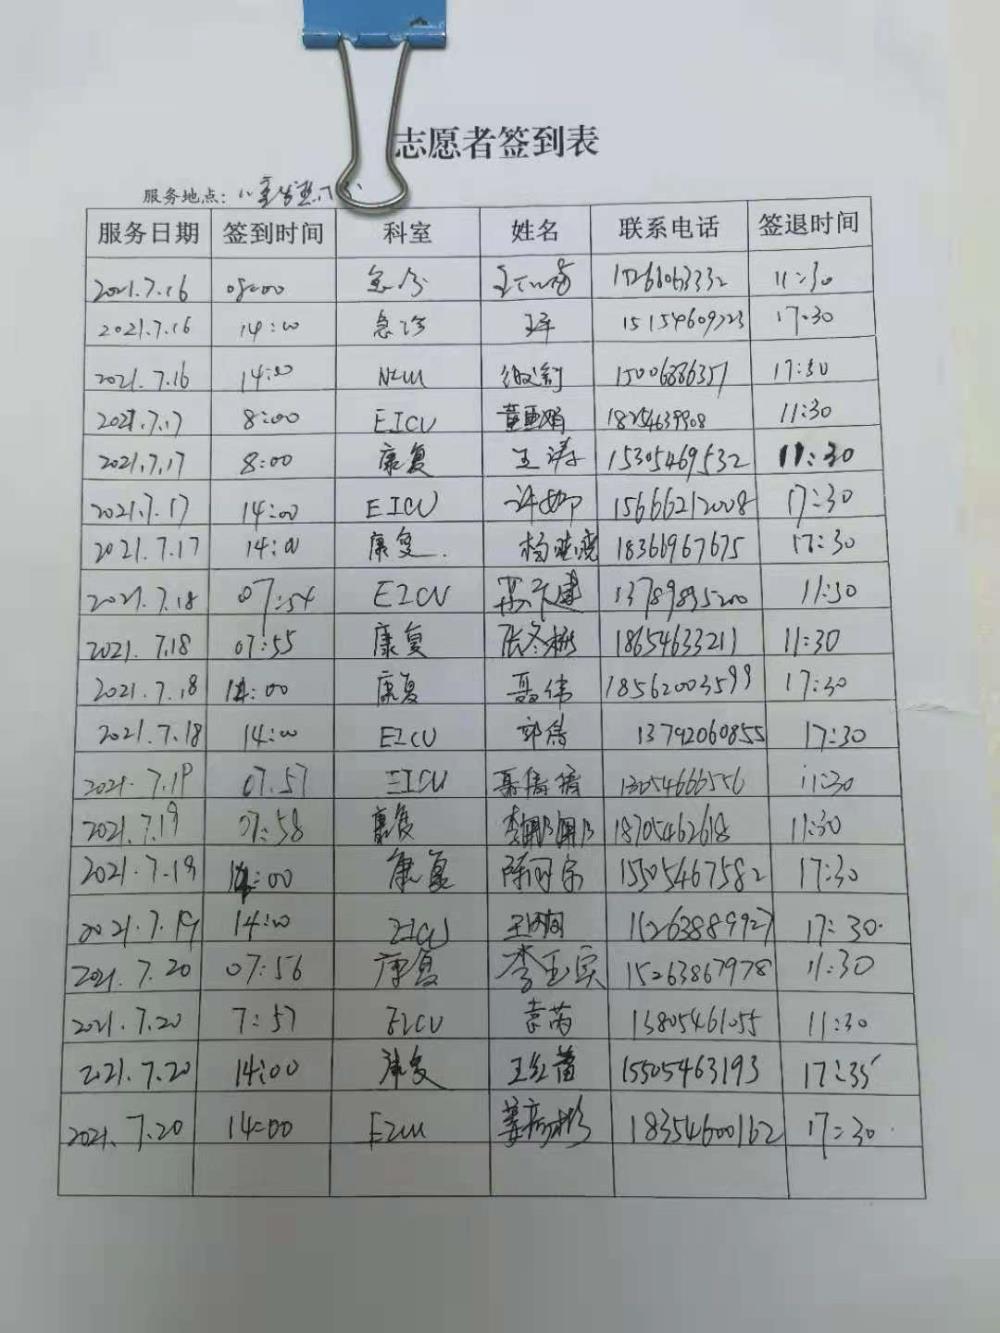 志愿者签到表
服务地点：儿童发热门
服务日期 签到时间 科室 姓名 联系电话 签退时间
2021.7.16 08:00 急诊 11:30
2021.7.16 14:00 急诊 王军 15154609723 17:30
2021.7.16 14:00 15006886357 17:30
2021.7.17 8:00 EICU 董亚娟 18254639908 11:30
2021.7.17 8:00 康复 王涛 15305469532 11:30
2021.7.17 14:00 EICU 许娜 15666212008 17:30
2021.7.17 14:00 康复. 杨晓晓 18366967675 17:30
2021.7.18 07:54 EICU 13789895200 11:30
2021.7.18 07:55 康复 张冬梅 18654633211 11:30
2021.7.18 14:00 康复 聂伟 18562003599 17:30
2021.7.18 14:00 EICU 郭倩 13792060855 17:30
2021.7.19 07.57 EICU 聂倩倩 13054666556 11:30
2021.7.19 07:58 康复 李娜娜 18705462618 11:30
2021.7.19 14:00 康复 15505467582 17:30
2021.7.19 14:00 EICU 15263889927 17:30.
2021.7.20 07:56 康复 李玉宾 15263867978 11:30
2021.7.20 7:57 EICU 袁芮 13805461055 11:30
2021.7.20 14:00 康复 王红蕾 15505463193 17:35
2021.7.20 14:00 EICU 姜彦彬 18354600162 17:30.